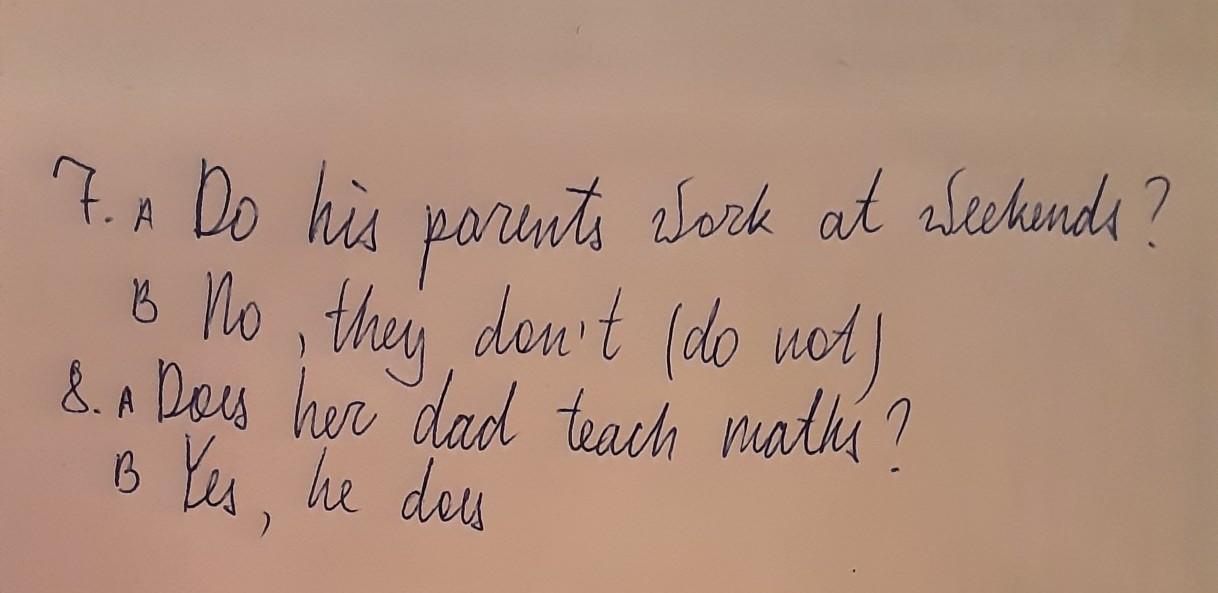 7. A Do his parents work at weekends?
B No, they don't (do not)
8. A Does her dad teach maths?
B Yes, he does